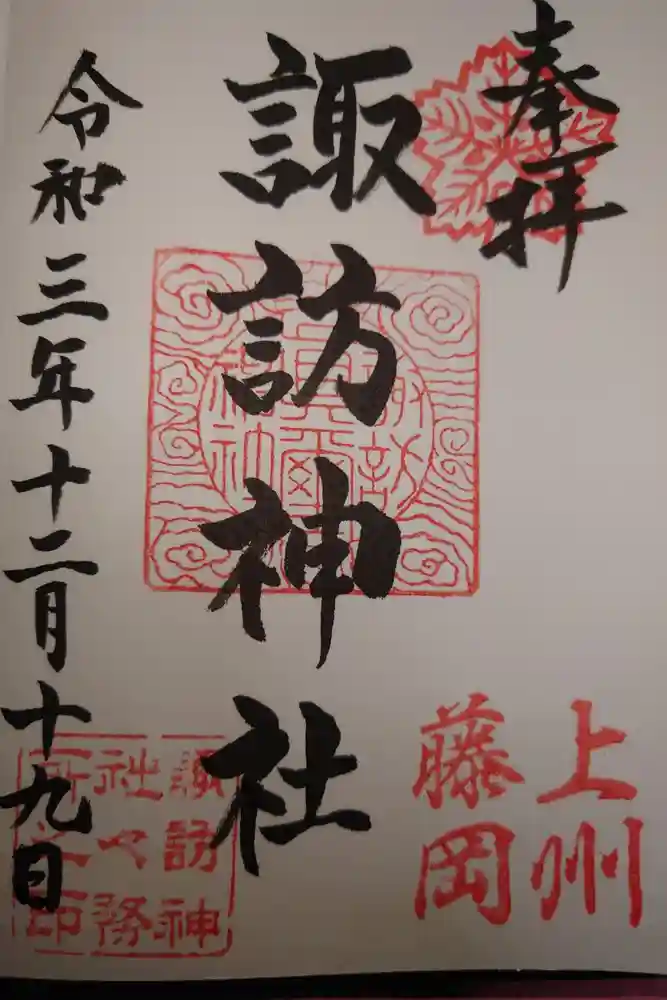 奉拝
上州
藤岡
諏訪神社
諏訪神
社々務
所之印
令和三年十二月十九日